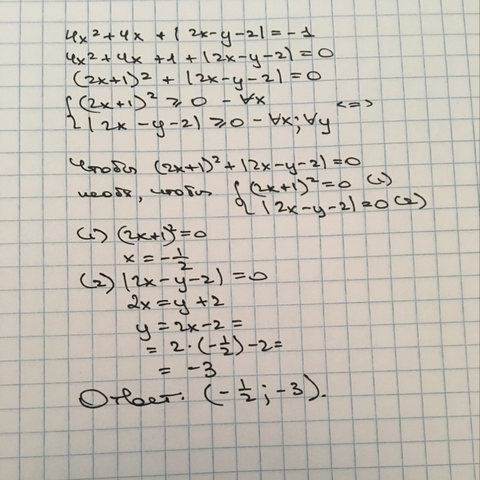 4x² + 4x + |2x-y-2| = -1
4x² + 4x + 1 + |2x-y-2| = 0
(2x+1)² + |2x-y-2| = 0
{ (2x+1)² ≥ 0 - ∀x <=>
{ |2x-y-2| ≥ 0 - ∀x; ∀y
Чтобы (2x+1)² + |2x-y-2| = 0
необх, чтобы { (2x+1)² = 0 (1)
{ |2x-y-2| = 0 (2)
(1) (2x+1)² = 0
x = -1/2
(2) |2x-y-2| = 0
2x = y + 2
y = 2x-2 =
= 2·(-1/2) - 2 =
= -3
Ответ: (-1/2; -3).